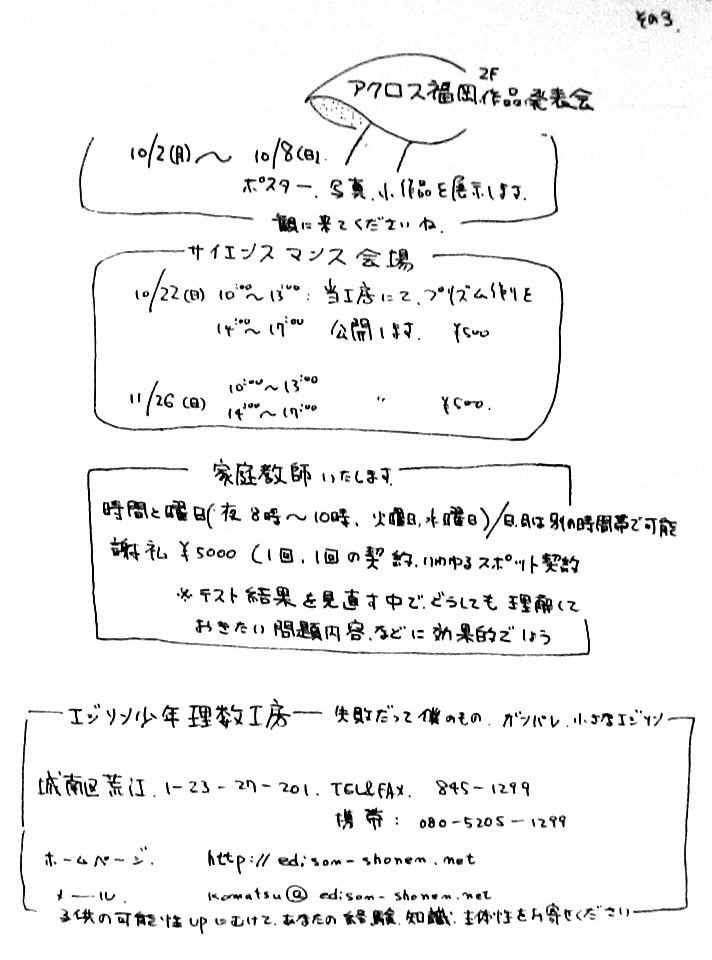 その3.
アクロス福岡 2F 作品発表会
10/2(月)〜 10/8(日).
ポスター、写真、小作品を展示します.
観に来てくださいね.
サイエンスマンス会場
10/22(日) 10:00〜13:00: 当工房にて、プリズム作りを
14:00〜17:00 公開します. ¥500
10:00〜13:00
11/26(日) 14:00〜17:00 〃 ¥500.
家庭教師いたします.
時間と曜日(夜8時〜10時、火曜日,水曜日)/日.月は別の時間帯で可能
謝礼 ¥5000 (1回、1回の契約、いわゆるスポット契約
※テスト結果を見直す中で、どうしても理解して
おきたい問題内容、などに効果的でしょう
エジソン少年理数工房 失敗だって僕のもの、ガンバレ、小さなエジソン
城南区荒江、1-23-27-201. TEL&FAX. 845-1299
携帯: 080-5205-1299
ホームページ. http://edison-shonen.net
メール. komatsu@edison-shonen.net
子供の可能性upにむけて、あなたの経験、知識、主体性をお寄せください